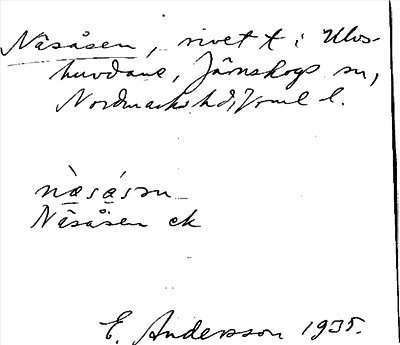 Näsåsen, rivet t i Ulvs-
huvdane, Järnskogs sn,
Nordmarks hd, Vrml l.
näsåsən
Näsåsen ek
E. Andersson 1935.